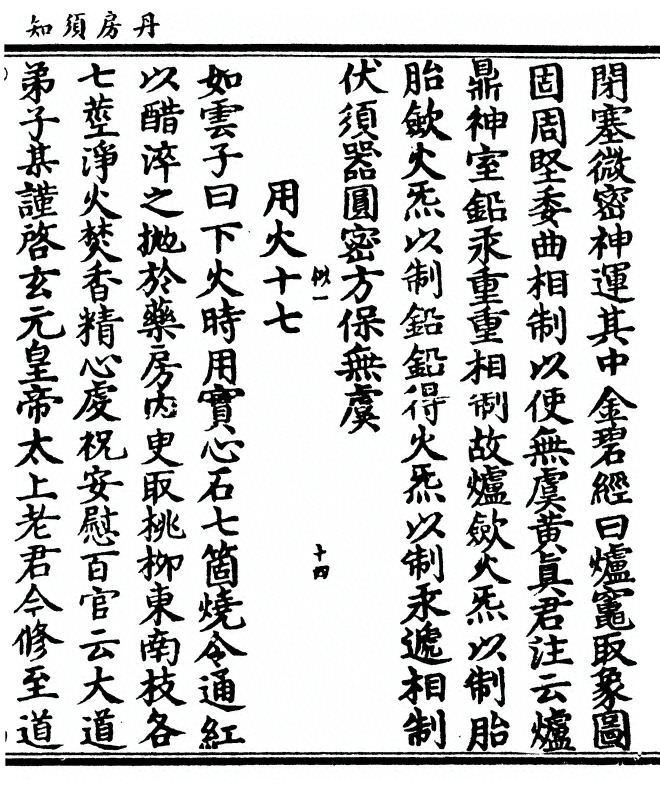 丹房須知
閉塞微密神運其中金碧經曰爐竈取象圓
固周堅委曲相制以使無虞黄真君注云爐
鼎神室鉛汞重重相制故爐歛火炁以制胎
胎歛火炁以制鉛鉛得火炁以制汞遞相制
伏須器圓密方保無虞
似一
十四
用火十七
如雲子曰下火時用實心石七箇燒令通紅
以醋淬之抛於藥房内更取桃柳東南枝各
七莖淨火焚香精心虔祝安慰百官云大道
弟子某謹啓玄元皇帝太上老君今修至道